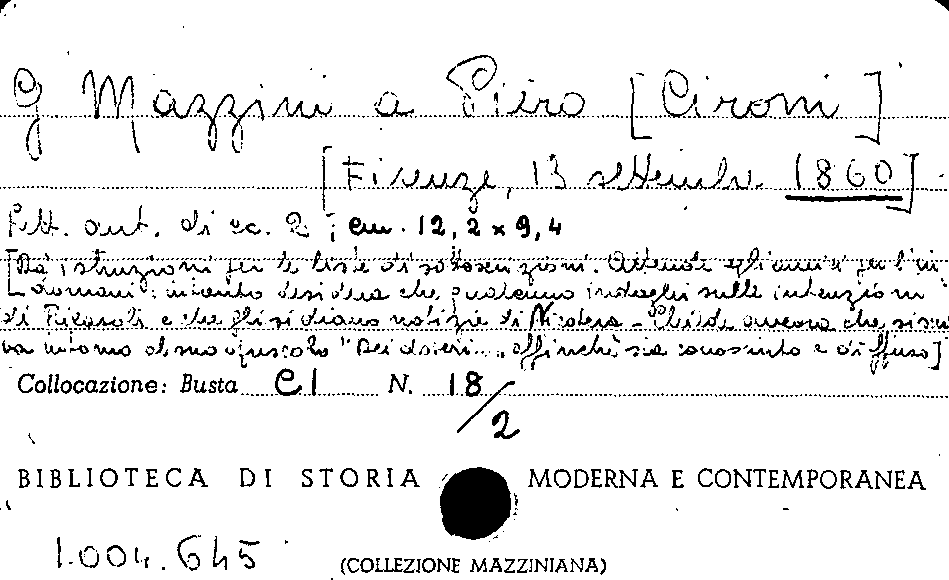 G Mazzini a Piero [Cironi]
[Firenze, 13 settembre 1860]
Lett. aut. di cc. 2 ; cm. 12,2 x 9,4
[Dà istruzioni per le liste di sottoscrizioni. Attende egli amici per l'in-
domani; intanto desidera che qualcuno indaghi sulle intenzioni
di Ricasoli e che gli si diano notizie di Nicotera - Chiede ancora che si scri
va intorno al suo opuscolo "Dei doveri..." affinché sia conosciuto e diffuso]
Collocazione: Busta C I N. 18/2
BIBLIOTECA DI STORIA MODERNA E CONTEMPORANEA
1.004.645 (COLLEZIONE MAZZINIANA)